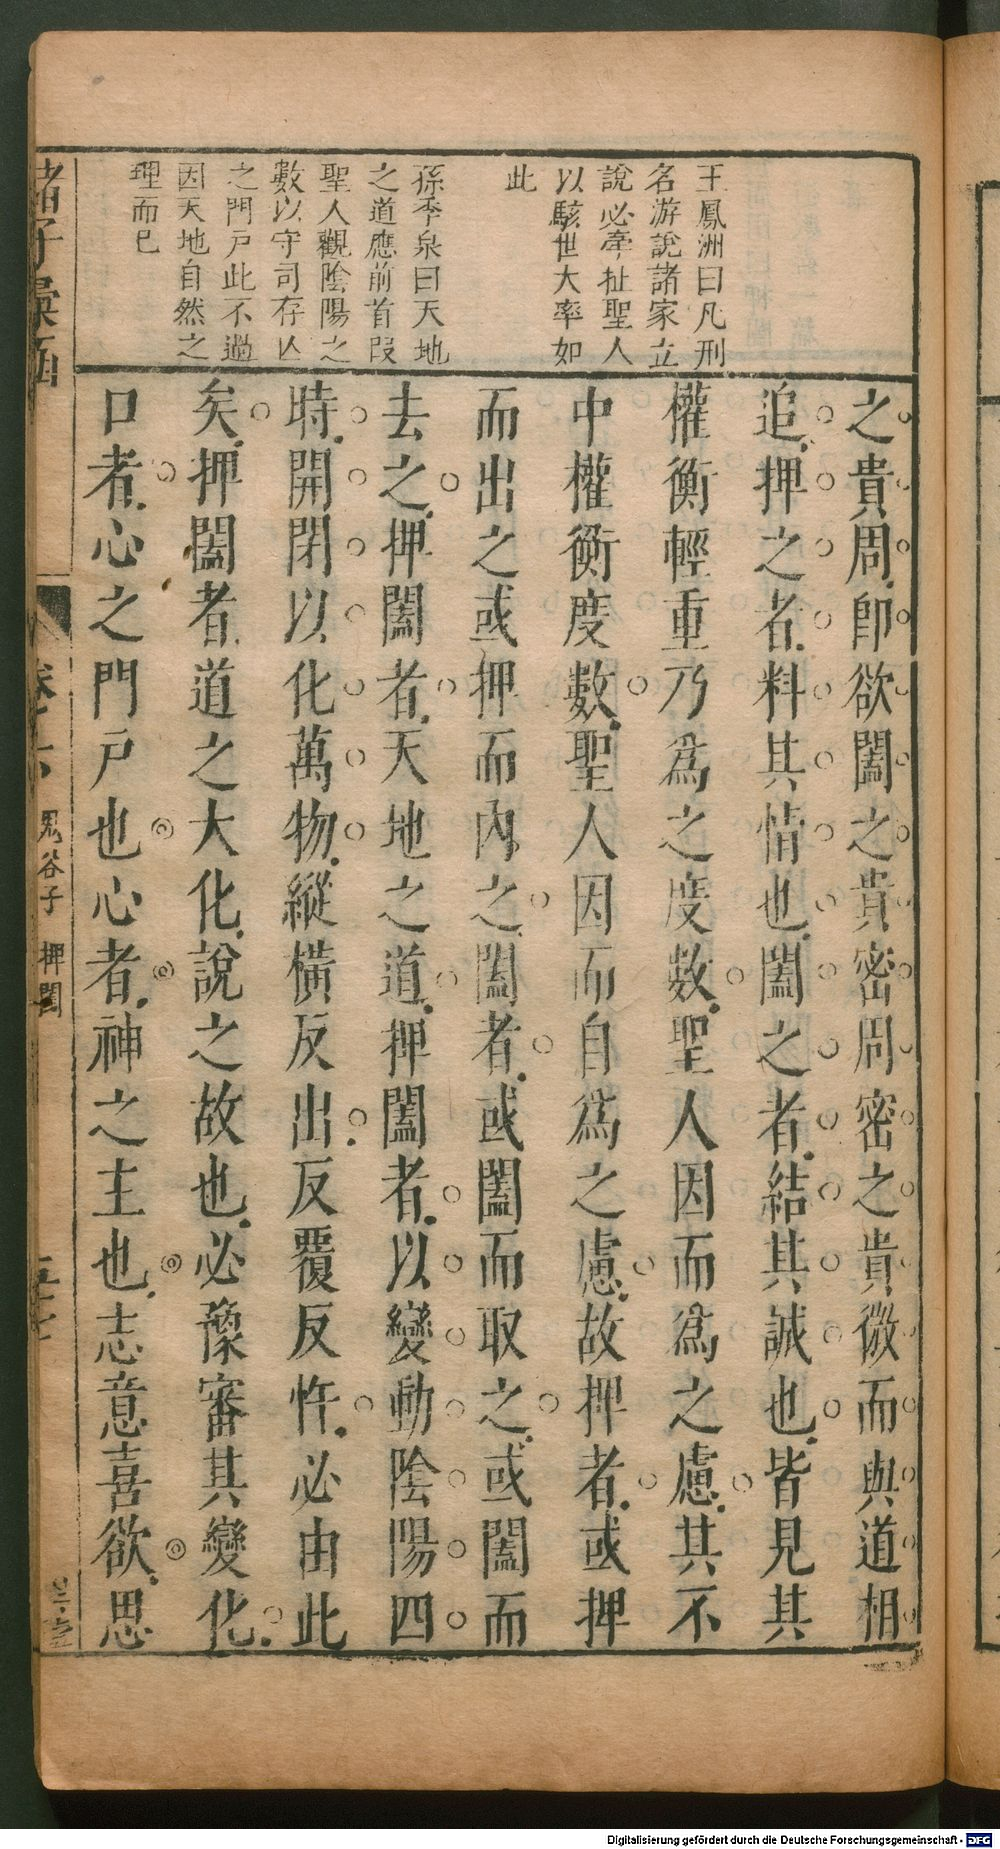 王鳳洲曰凡刑
名游說諸家立
說必牽扯聖人
以駭世大率如
此
孫季泉曰天地
之道應前首叚
聖人觀陰陽之
數以守司存亾
之門戶此不過
因天地自然之
理而已
之貴周即欲闔之貴密周密之貴微而與道相
追押之者料其情也闔之者結其誠也皆見其
權衡輕重乃爲之度數聖人因而爲之慮其不
中權衡度數聖人因而自爲之慮故押者或押
而出之或押而內之闔者或闔而取之或闔而
去之押闔者天地之道押闔者以變動陰陽四
時開閉以化萬物縱橫反出反覆反忤必由此
矣押闔者道之大化說之故也必豫審其變化
口者心之門戶也心者神之主也志意喜欲思
諸子彙函
卷 鬼谷子 押闔
Digitalisierung gefördert durch die Deutsche Forschungsgemeinschaft - DFG